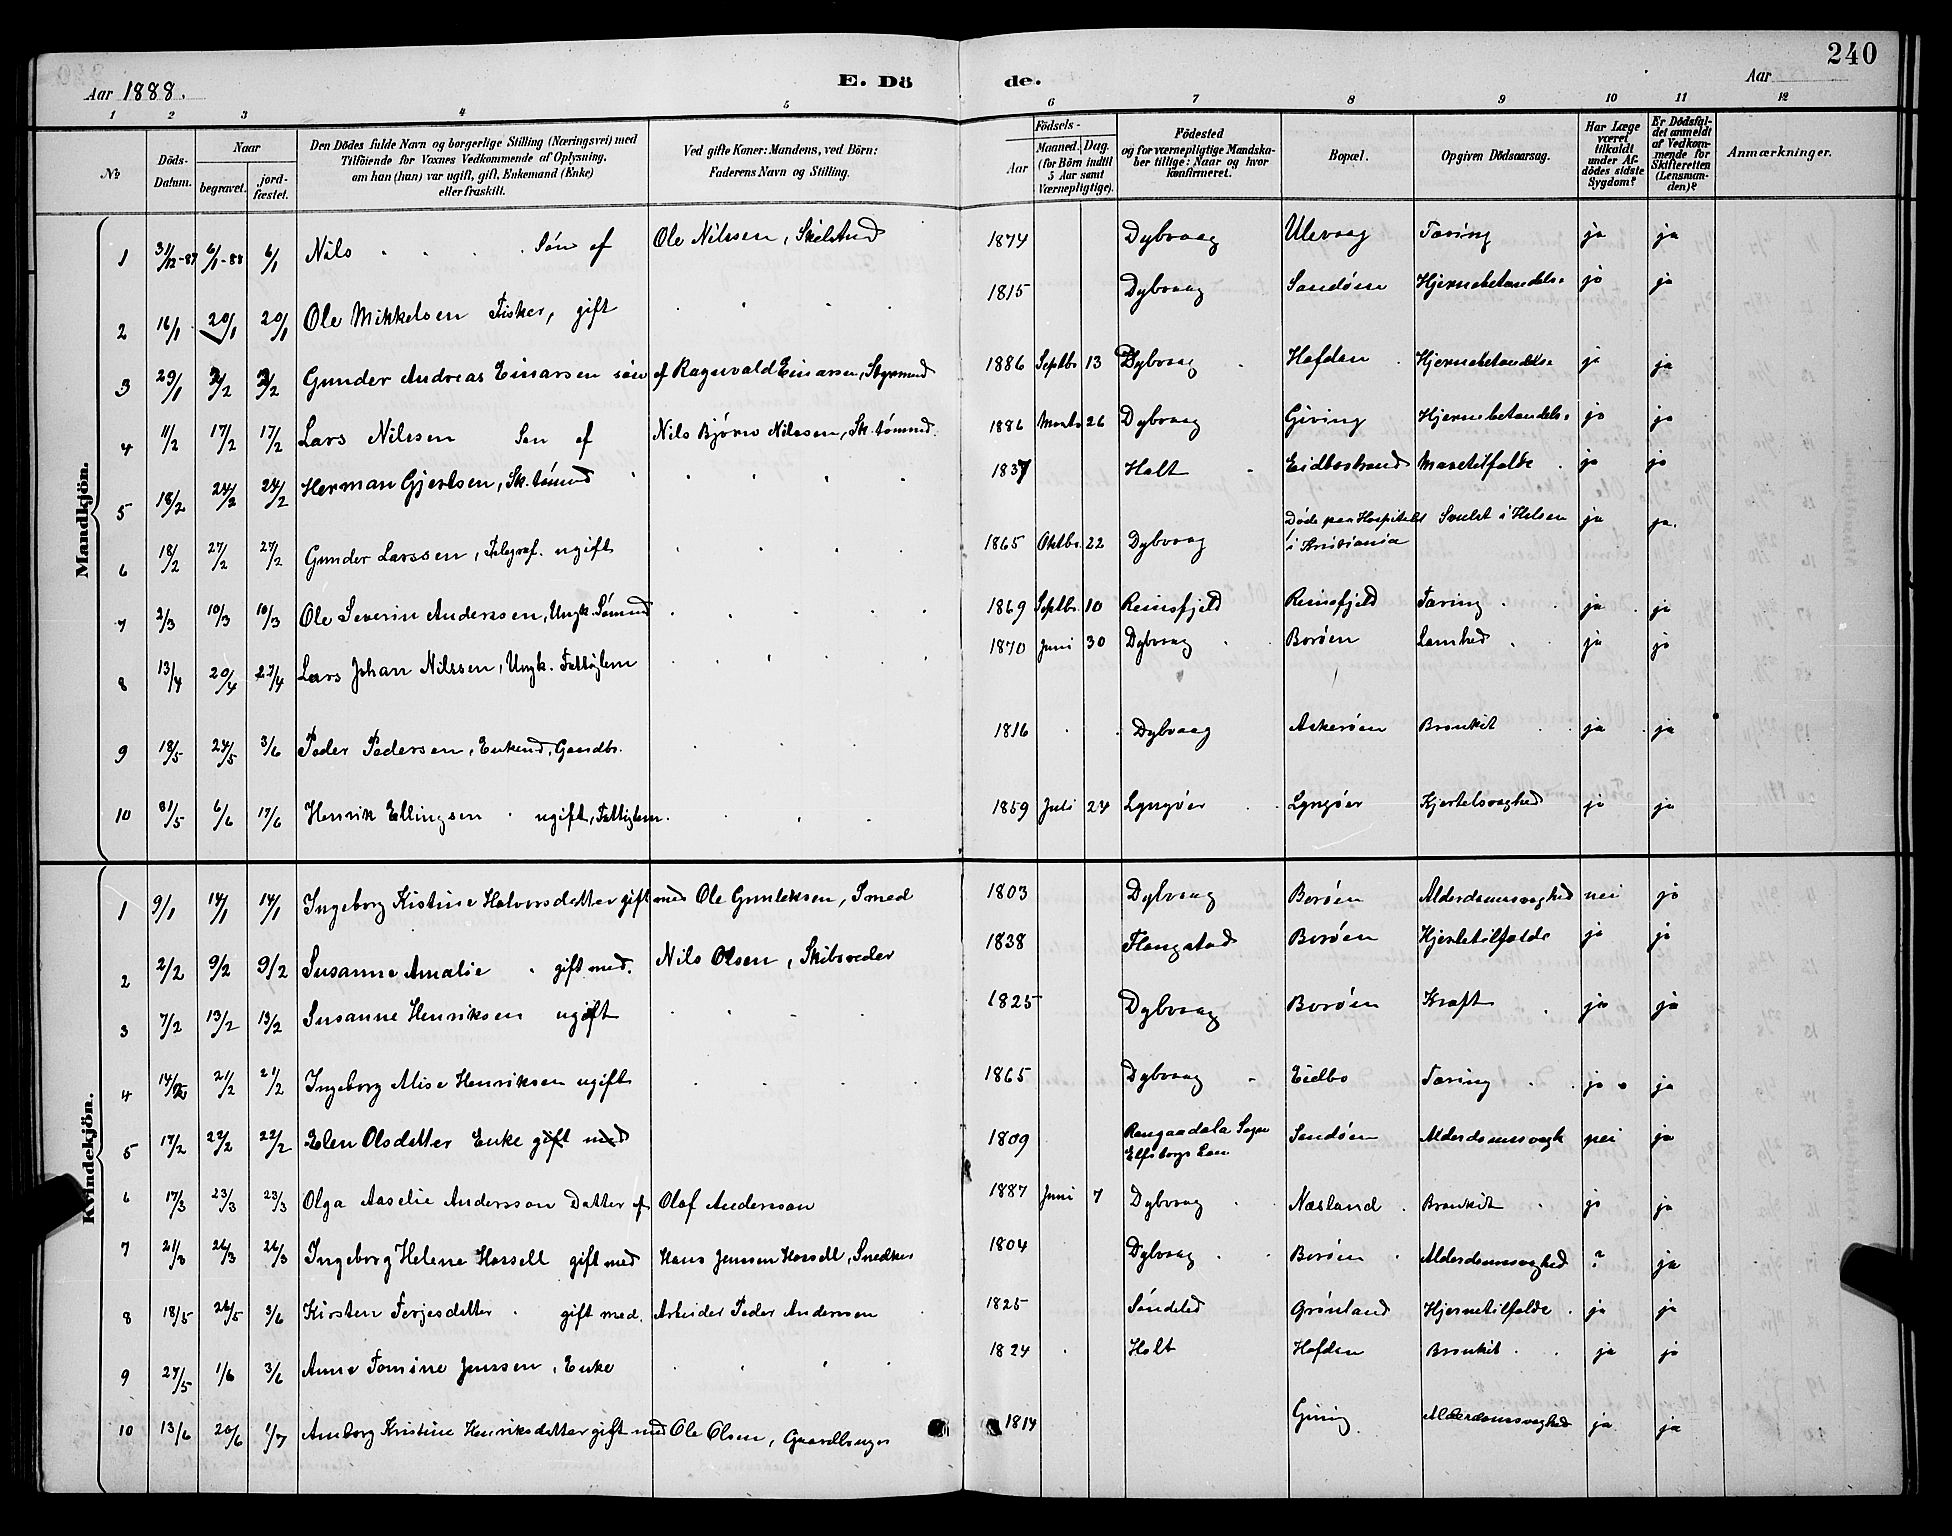 240
Aar 1888.
E. Döde.
Aar
1 2 3 4 5 6 7 8 9 10 11 12
No
Döds-Datum.
Naar
begravet.
jordfæstet.
Den Dödes fulde Navn og borgerlige Stilling (Næringsvei) med
Tilföiende for Voxnes Vedkommende af Oplysning,
om han (hun) var ugift, gift, Enkemand (Enke)
eller fraskilt.
Ved gifte Koner: Mandens, ved Börn:
Faderens Navn og Stilling.
Födsels-
Aar
Maaned. Dag.
(for Börn indtil
5 Aar samt
Værnepligtige).
Födested
og for værnepligtige Mandskaber tillige: Naar og hvor
konfirmeret.
Bopæl.
Opgiven Dödsaarsag.
Har Læge
været
tilkaldt
under Afdödes sidste
Sygdom?
Er Dödsfaldet anmeldt
af Vedkommende for
Skifteretten
(Lensmanden)?
Anmærkninger.
Mandkjön.
1 31/12-87 6/1-88 6/1 Nils Søn af Ole Nilssen, 1874 Dybvaag Ulevaag Tæring ja ja
2 16/1 20/1 20/1 Ole Mikkelsen Fisker, gift 1815 Dybvaag Sandøen Hjernebetændelse ja ja
3 29/1 3/2 3/2 Gunder Andreas Einarsen søn af Ragnvald Einarsen, Styrmand 1886 Septbr 13 Dybvaag Hafden Hjernebetændelse ja ja
4 11/2 17/2 17/2 Lars Nilssen Søn af Nils Bjørn Nilssen, Sk.tømmd. 1886 26 Dybvaag Gjeving Hjernebetændelse ja ja
5 18/2 24/2 24/2 Herman Gjertsen, Sk.tømmd 1837 Holt Eidbostrand Mavetilfælde ja ja
6 18/2 27/2 27/2 Gunder Larssen, Telegraf. ugift 1865 Oktbr. 22 Dybvaag Døde paa Hospitalet i Kristiania Svulst i Halsen ja ja.
7 2/3 10/3 10/3 Ole Severin Anderssen, Ungk. Sømand 1869 Septbr. 10 Reinsfjeld Reinsfjeld Tæring ja ja
8 13/4 20/4 27/4 Lars Johan Nilssen, Ungk. Fattiglem 1870 Juni 30 Dybvaag Borøen Lamhed ja ja
9 18/5 24/5 3/6 Peder Pedersen, Enkemd, Gaardbr. 1816 Dybvaag Askerøen Bronkit ja ja
10 31/5 6/6 17/6 Henrik Ellingsen ugift, Fattiglem. 1859 Juli 24 Lyngøer Lyngøer Kjertelsvaghed ja ja
Kvindekjön.
1 9/1 14/1 14/1 Ingeborg Kistine Halvorsdatter gift med Ole Gunleksen, Smed 1803 Dybvaag Borøen Alderdomssvaghed nei ja
2 2/2 9/2 9/2 Susanne Amalie gift med. Nils Olsen, Skibsreder 1838 Flangstad Borøen Hjertetilfælde ja ja
3 7/2 13/2 13/2 Susanne Henriksen ugift 1825 Dybvaag Borøen Kræft ja ja
4 14/2 21/2 21/2 Ingeborg Alise Henriksen ugift 1865 Dybvaag Eidbo Tæring ja ja
5 17/2 22/2 22/2 Elen Olsdatter Enke gift med 1809 Rangadala Sogn Elfsborgs Læn Sandøen Alderdomssvagh nei ja
6 17/3 23/3 23/3 Olga Aaselie Andersson Datter af Olaf Andersson 1887 Juni 7 Dybvaag Næsland Bronkit ja ja
7 21/3 26/3 26/3 Ingeborg Helene Hassell gift med Hans Jenssen Hassell, Snedker 1804 Dybvaag Borøen Alderdomssvaghed ? ja
8 18/5 26/5 3/6 Kirsten Terjesdatter gift med. Arbeider Peder Anderssen 1825 Søndeled Grønland Hjernetilfælde ja ja
9 27/5 1/6 3/6 Anne Tomine Jenssen, Enke 1824 Holt Hafden Bronkit ja ja
10 13/6 20/6 1/7 Anborg Kristine Henriksdatter gift med Ole Olsen, Gaardbruger 1814 Giving Alderdomssvaghed ja ja